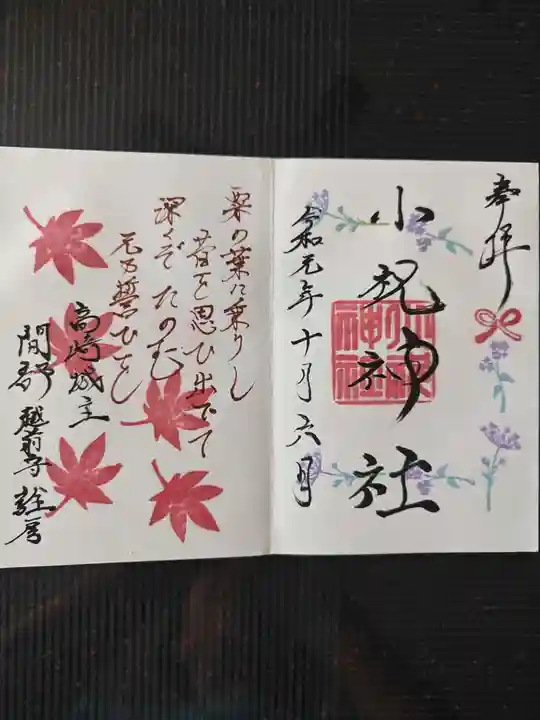 奉拝
小祝神社
小祝神社
令和元年十月六日
粟の葉に乗りし
昔を思ひ出でて
深くぞたのむ
元乃誓ひを
高崎城主
間部越前守詮房